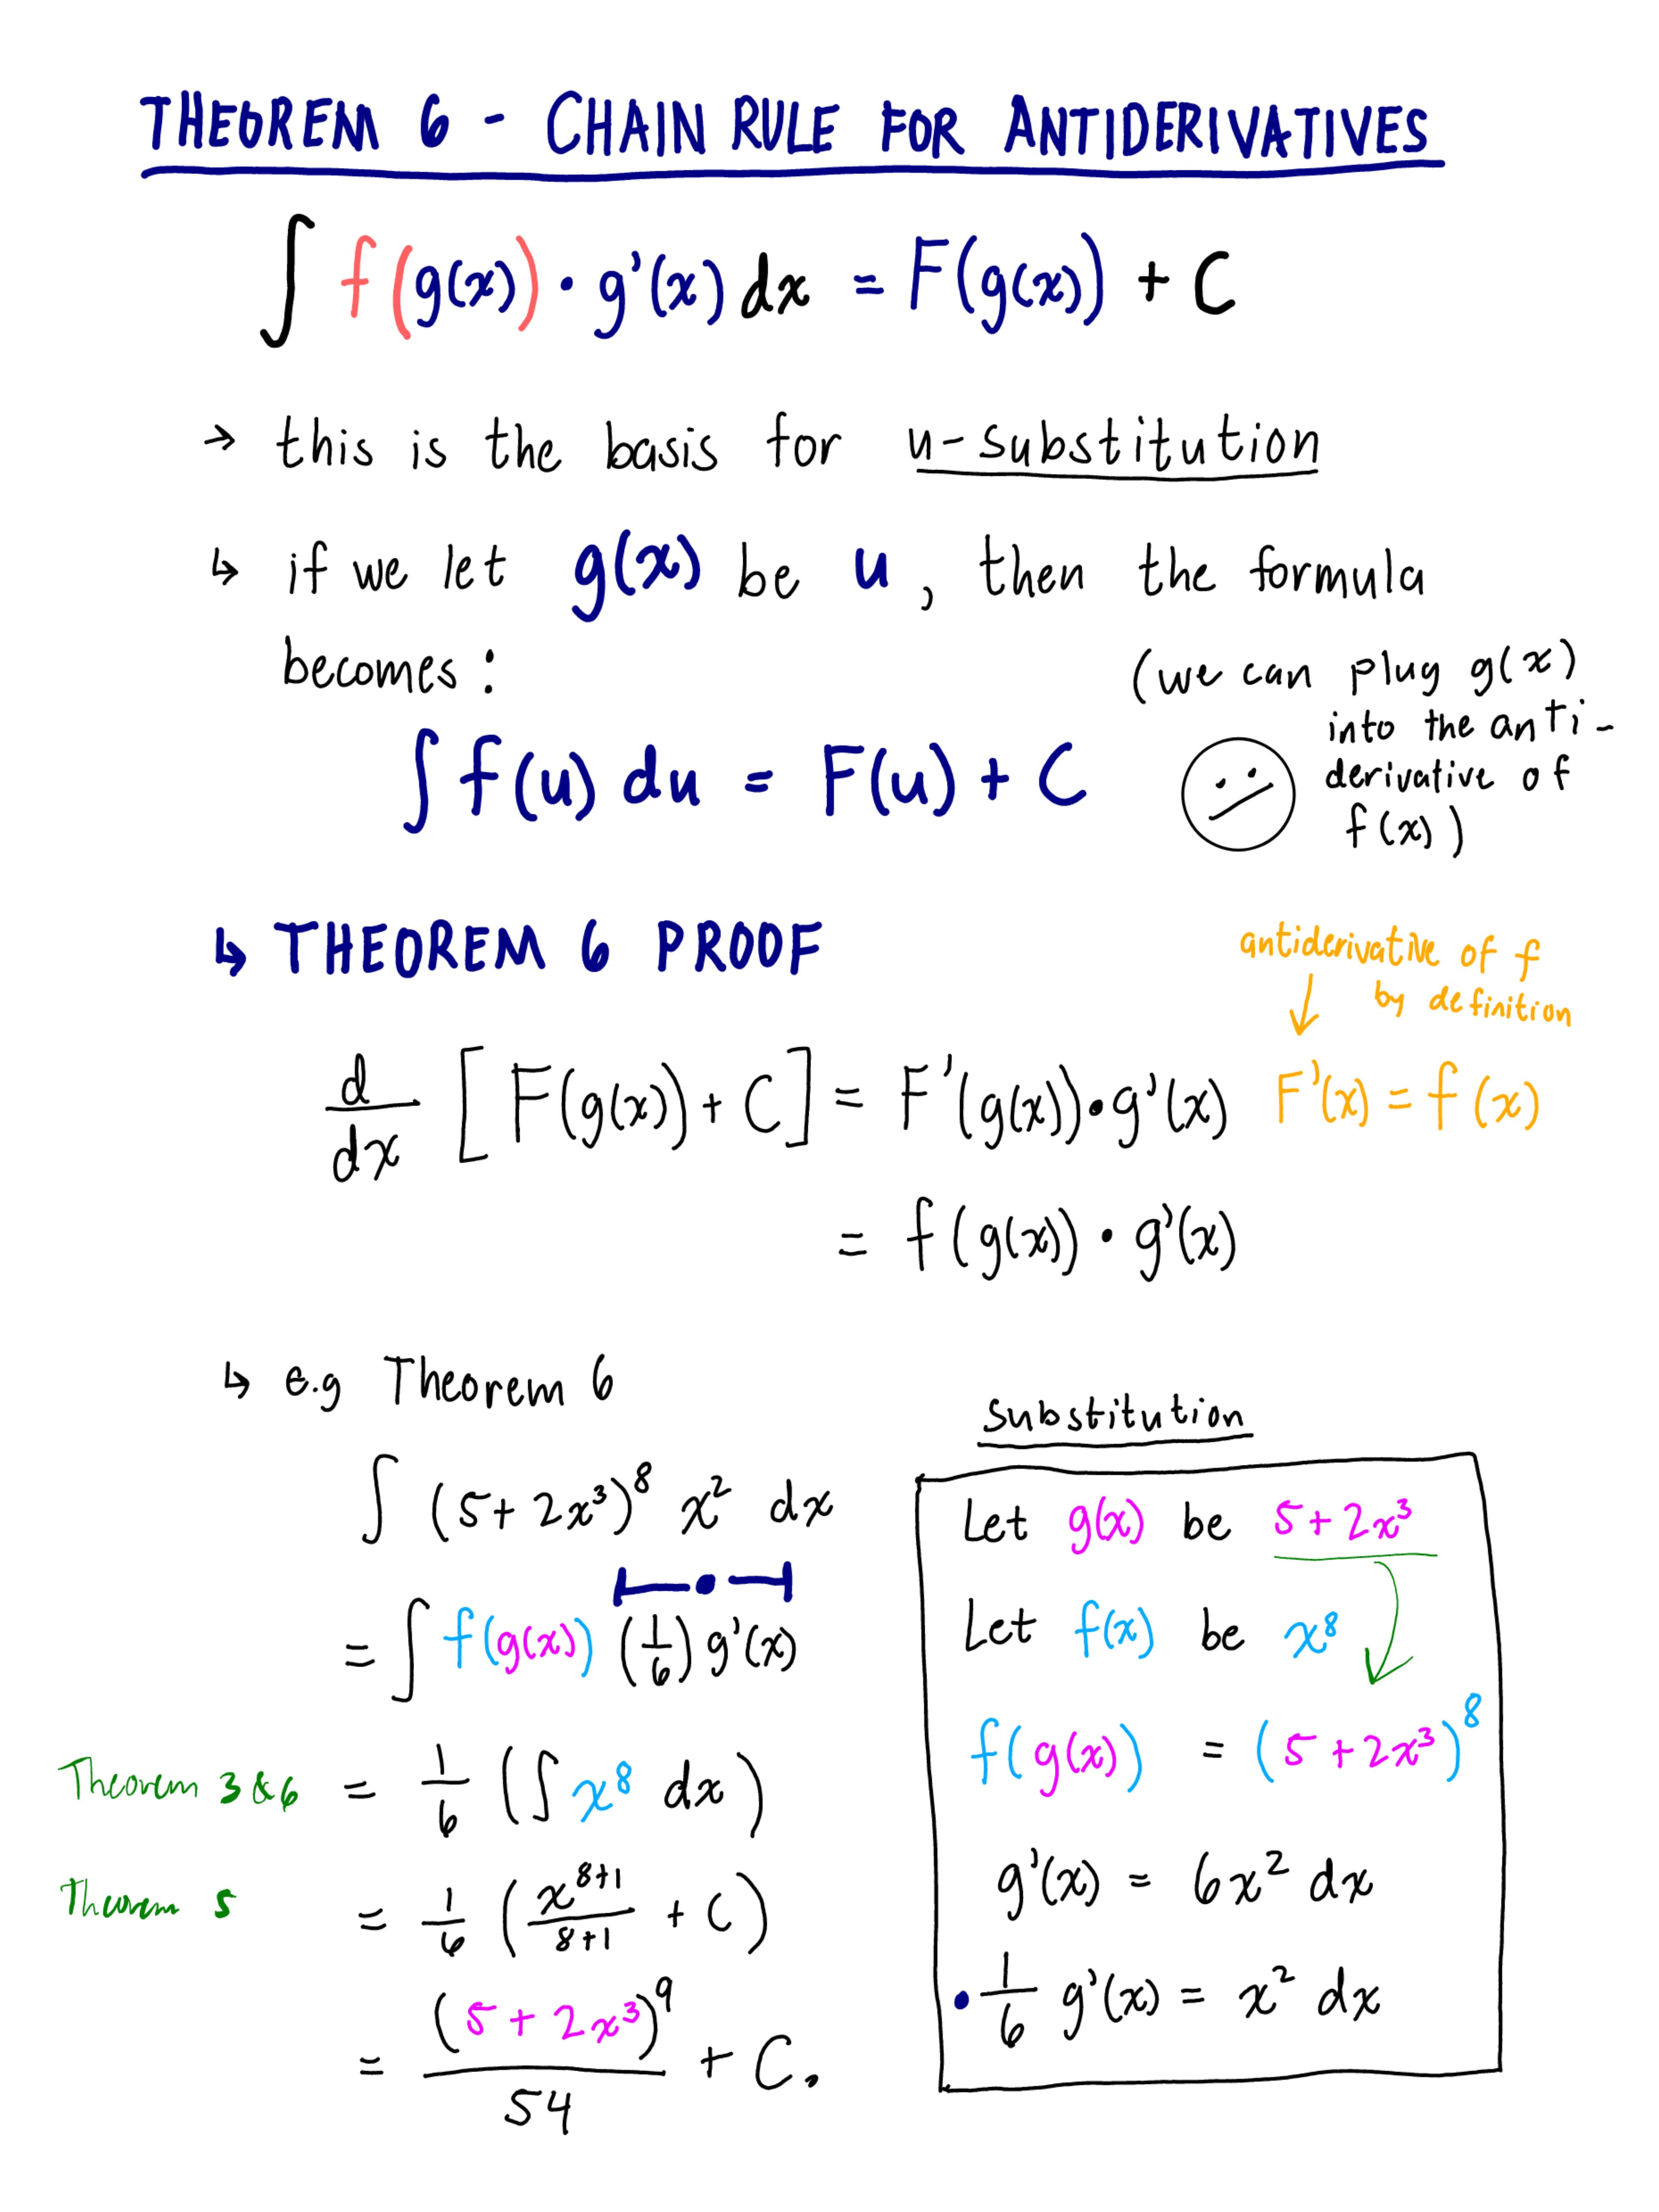 THEOREM 6 - CHAIN RULE FOR ANTIDERIVATIVES
∫ f(g(x)) · g'(x) dx = F(g(x)) + C
→ this is the basis for u-substitution
↳ if we let g(x) be u, then the formula
becomes:
(we can plug g(x)
into the anti-
derivative of
f(x))
∫ f(u) du = F(u) + C
↳ THEOREM 6 PROOF
antiderivative of f
by definition
↓
d/dx [F(g(x)) + C] = F'(g(x)) · g'(x)
F'(x) = f(x)
= f(g(x)) · g'(x)
↳ e.g Theorem 6
∫ (5 + 2x³)⁸ x² dx
= ∫ f(g(x)) (1/6) g'(x)
Theorem 3 & 6 = 1/6 (∫ x⁸ dx)
Theorem 5 = 1/6 (x⁸⁺¹/8+1 + C)
= (5 + 2x³)⁹/54 + C.
Substitution
Let g(x) be 5 + 2x³
Let f(x) be x⁸
f(g(x)) = (5 + 2x³)⁸
g'(x) = 6x² dx
· 1/6 g'(x) = x² dx